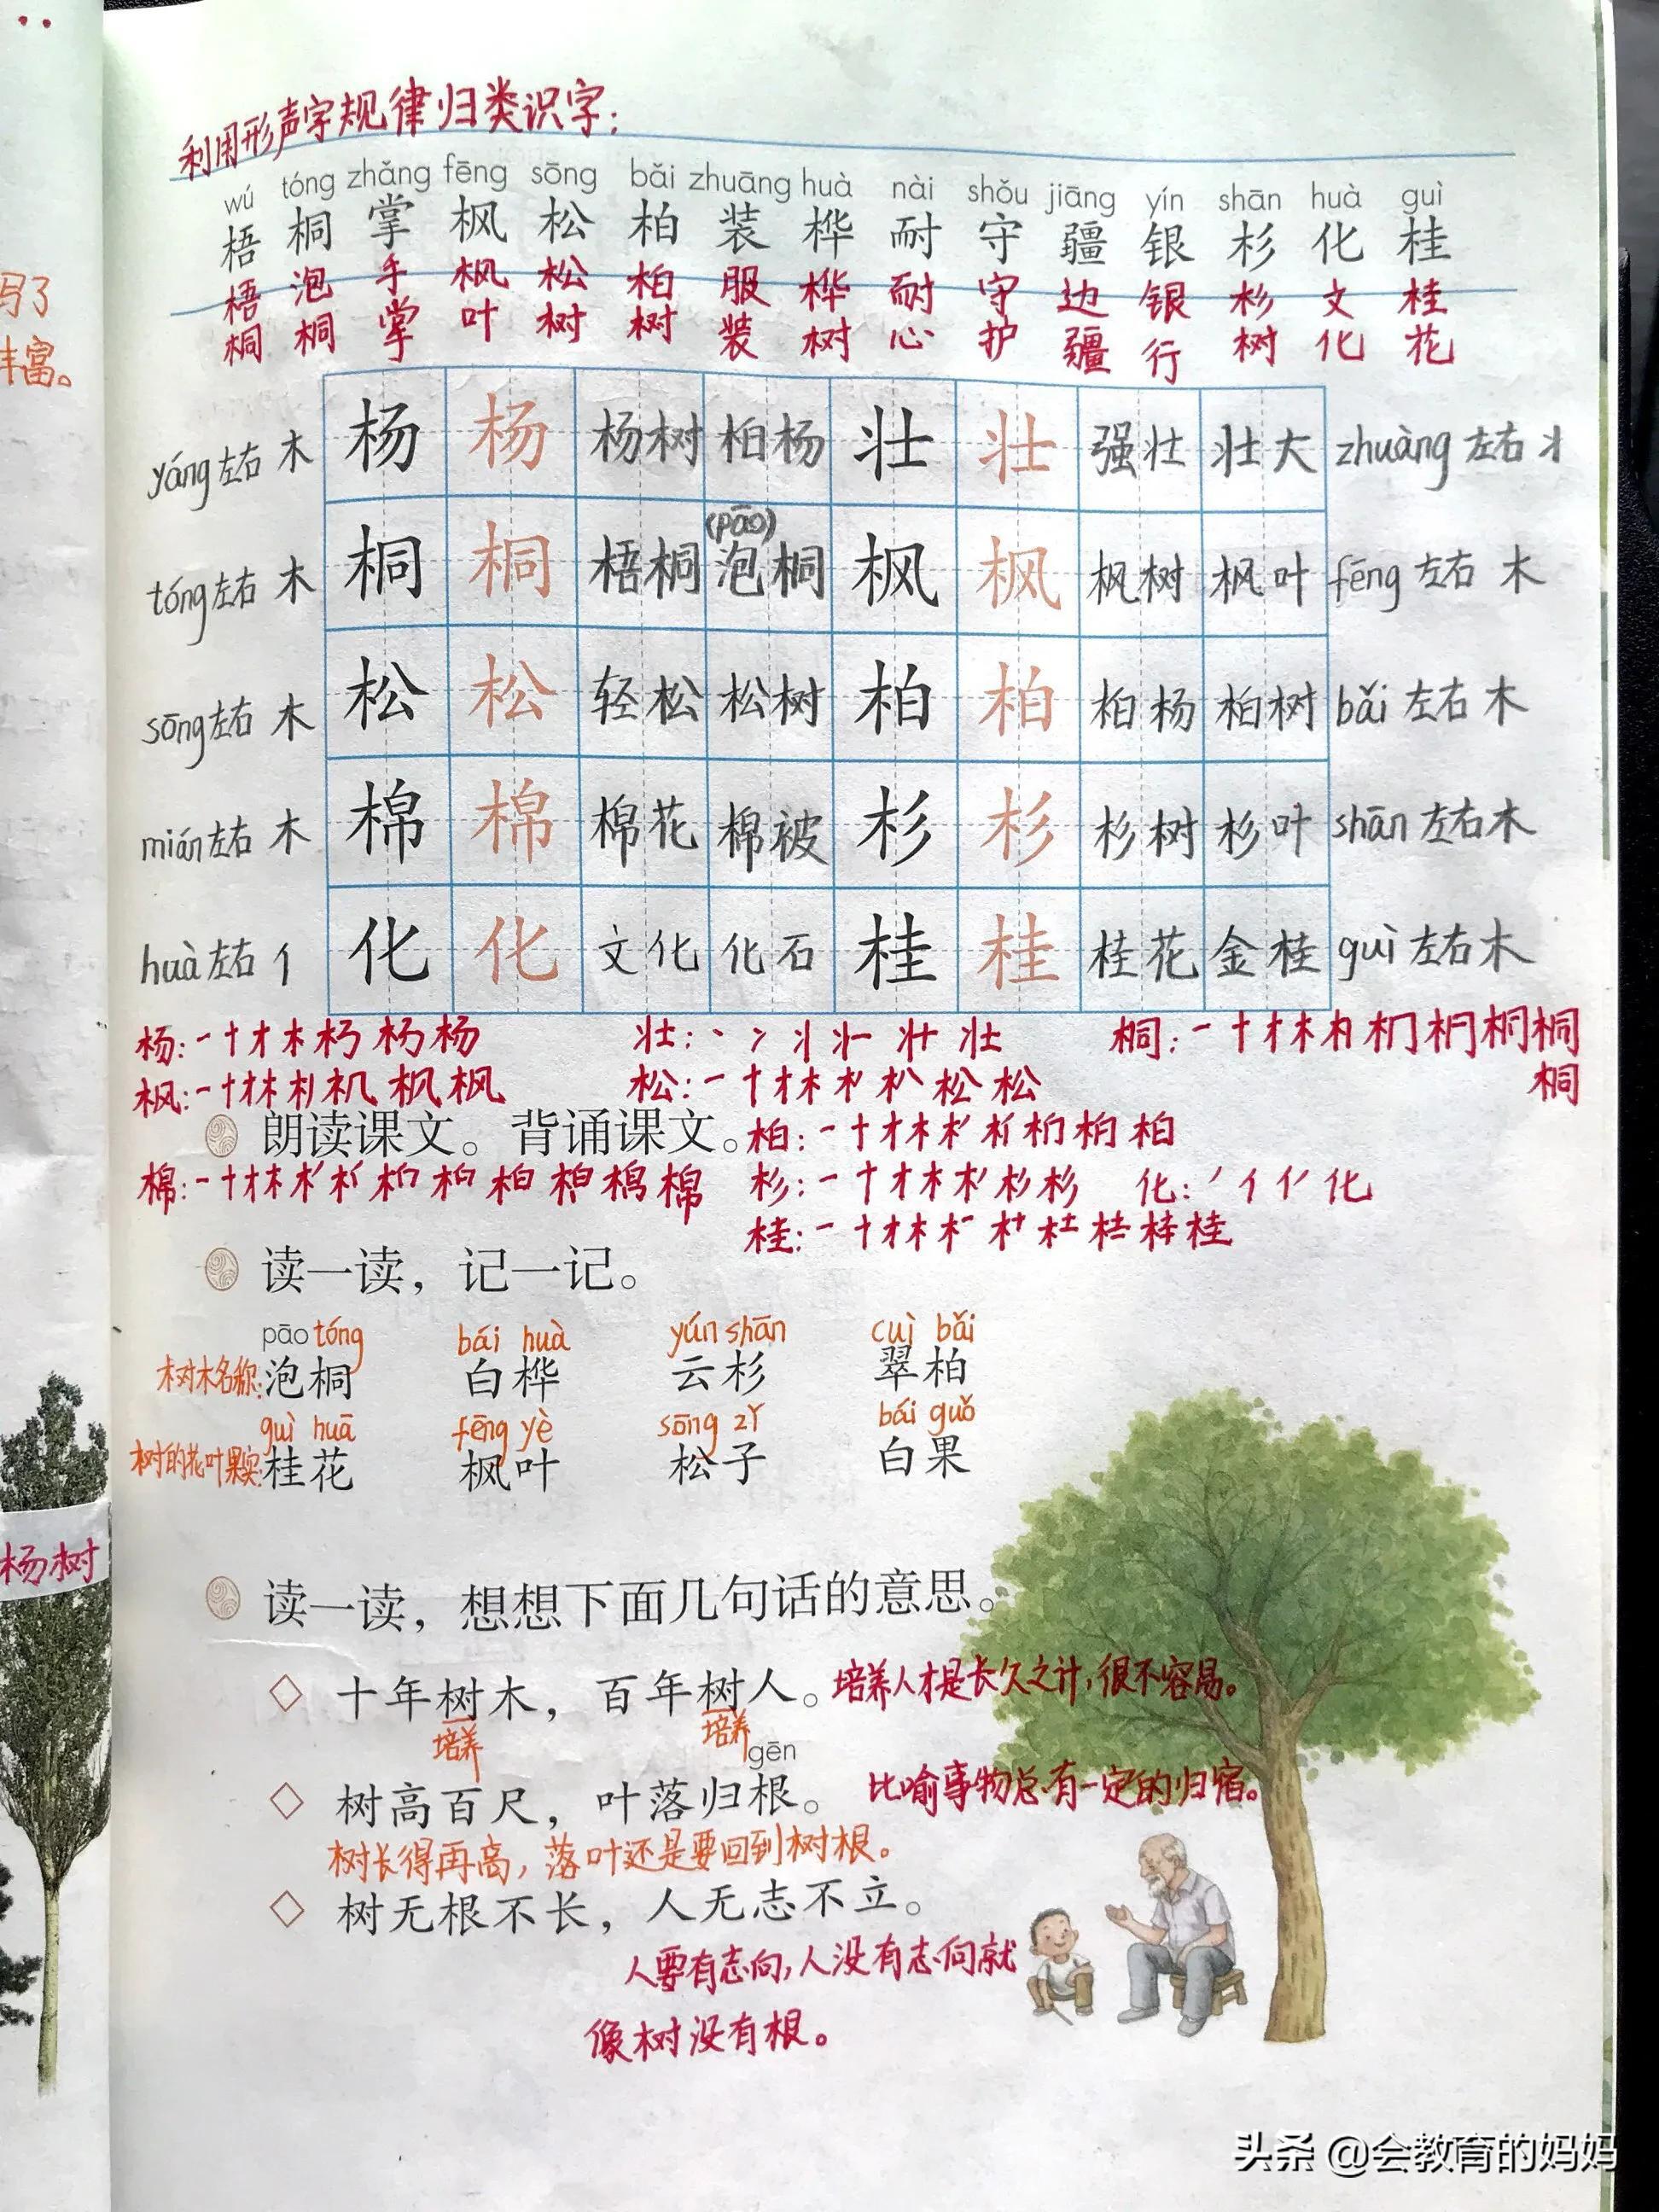 利用形声字规律归类识字：
wú tóng zhǎng fēng sōng bǎi zhuāng huà nài shǒu jiāng yín shān huà guì
梧 桐 掌 枫 松 柏 装 桦 耐 守 疆 银 杉 化 桂
梧桐 泡桐 手掌 枫叶 松树 柏树 服装 桦树 耐心 守护 边疆 银行 杉树 文化 桂花
yáng 左右 木 杨 杨 杨树 柏杨 壮 壮 强壮 壮大 zhuàng 左右 丬
(pāo)
tóng 左右 木 桐 桐 梧桐 泡桐 枫 枫 枫树 枫叶 fēng 左右 木
sōng 左右 木 松 松 轻松 松树 柏 柏 柏杨 柏树 bǎi 左右 木
mián 左右 木 棉 棉 棉花 棉被 杉 杉 杉树 杉叶 shān 左右 木
huà 左右 亻 化 化 文化 化石 桂 桂 桂花 金桂 guì 左右 木
杨： 壮： 桐：
枫： 松：
朗读课文。背诵课文。柏：
棉： 杉： 化：
桂：
读一读，记一记。
pāo tóng bái huà yún shān cuì bǎi
树木名称：泡桐 白桦 云杉 翠柏
guì huā fēng yè sōng zǐ bái guǒ
树的花叶果实：桂花 枫叶 松子 白果
杨树
读一读，想想下面几句话的意思。
十年树木，百年树人。培养人才是长久之计，很不容易。
培养 培养
gēn
树高百尺，叶落归根。 比喻事物总有一定的归宿。
树长得再高，落叶还是要回到树根。
树无根不长，人无志不立。
人要有志向，人没有志向就
像树没有根。
头条 @会教育的妈妈